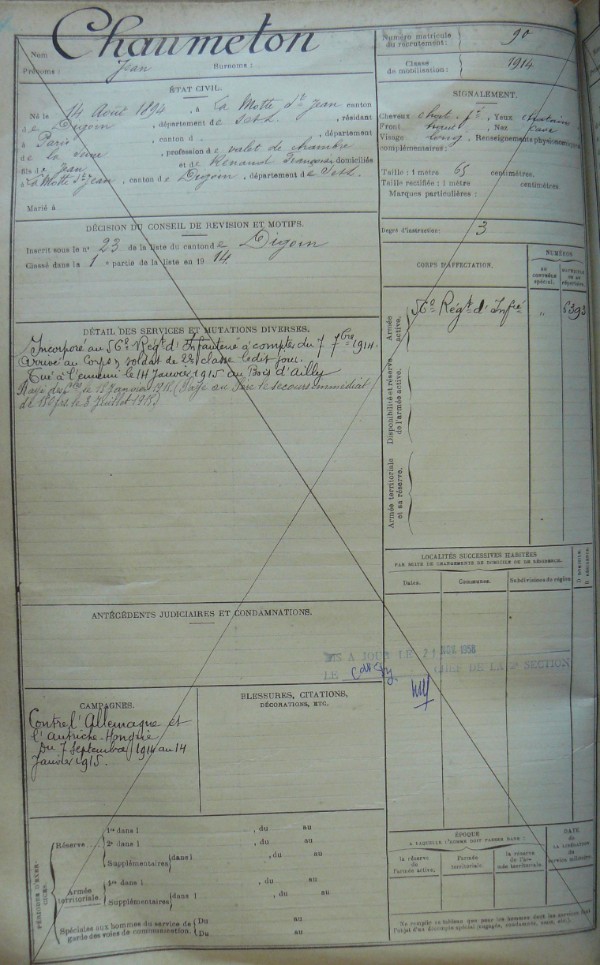 Chaumeton
Nom
Prénoms : Jean Surnoms :
Numéro matricule
du recrutement : 90
Classe
de mobilisation : 1914
ÉTAT CIVIL.
Né le 14 Août 1894, à La Motte St Jean canton
de Digoin, département de S et L, résidant
à Paris canton d , département
de la Seine, profession de valet de chambre
fils de Jean et de Renaud Françoise domiciliés
à La Motte St Jean, canton de Digoin, département de S et L
Marié à
SIGNALEMENT.
Cheveux chat. f. Yeux chatain
Front haut Nez cave
Visage long Renseignements physionomiques
complémentaires :
Taille : 1 mètre 65 centimètres.
Taille rectifiée : 1 mètre centimètres.
Marques particulières :
Degré d'instruction : 3
DÉCISION DU CONSEIL DE REVISION ET MOTIFS.
Inscrit sous le n° 23 de la liste du canton de Digoin
Classé dans la 1e partie de la liste en 1914.
DÉTAIL DES SERVICES ET MUTATIONS DIVERSES.
Incorporé au 56e Régt d'Infanterie à compter du 7 7bre 1914.
Arrivé au Corps & soldat de 2e classe ledit jour.
Tué à l'ennemi le 14 Janvier 1915 au Bois d'Ailly
Rayé des le 15 Janvier (Payé au Père le secours immédiat
de 150 frs le 8 Juillet 1915)
CORPS D'AFFECTATION.
NUMÉROS
au contrôle spécial.
matricule ou au répertoire.
Armée active.
56e Régt d'Infie " 6393
Disponibilité et réserve de l'armée active.
Armée territoriale et sa réserve.
LOCALITÉS SUCCESSIVES HABITÉES
PAR SUITE DE CHANGEMENTS DE DOMICILE OU DE RÉSIDENCE.
Dates. Communes. Subdivisions de région. D. domicile. R. résidence.
ANTÉCÉDENTS JUDICIAIRES ET CONDAMNATIONS.
MIS A JOUR LE 21 1956
LE CHEF DE LA 2e SECTION
CAMPAGNES.
BLESSURES, CITATIONS,
DÉCORATIONS, ETC.
Contre l'Allemagne et
l'Autriche-Hongrie
Du 7 Septembre 1914 au 14
Janvier 1915.
PÉRIODES D'EXERCICES.
Réserve.
1re dans l , du au
2e dans l , du au
Supplémentaires dans l , du au
, du au
Armée
territoriale.
1re dans l , du au
Supplémentaires dans l , du au
, du au
Spéciales aux hommes du service de
garde des voies de communication.
Du au
Du au
ÉPOQUE
A LAQUELLE L'HOMME DOIT PASSER DANS :
la réserve
de l'armée active.
l'armée
territoriale.
la réserve
de l'armée territoriale.
DATE
de
la libération
du
service militaire.
On remplit ce tableau que pour les hommes dont les services font
l'objet d'un décompte spécial (engagés, condamnés, omis, etc.).